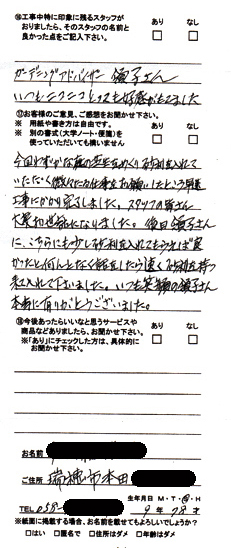 ⑯工事中特に印象に残るスタッフが
おりましたら、そのスタッフの名前と
良かった点をご記入下さい。
あり なし
ガーデニングアドバイザー 領子さん
いつもニコニコとっても好感がもてました
⑰お客様のご意見、ご感想をお聞かせ下さい。
※ 用紙や書き方は自由です。
※ 別の書式(大学ノート・便箋)を
使っていただいても構いません
あり なし
今回わずかな庭の芝生をめくり砂利を入れて
いただく
工事にかかり完了しました。スタッフの皆さん
大変お世話になりました。後日領子さん
に、こちらにも少し砂利を入れてもらえば良
かったと何となく話をしたら速く砂利を持っ
て来て入れて下さいました。いつも笑顔の領子さん
本当に有りがとうございました。
⑱今後あったらいいなと思うサービスや
商品などありましたら、お聞かせ下さい。
※「あり」にチェックした方は、具体的に
お聞かせ下さい。
あり なし
お名前
ご住所 瑞穂市本田
TEL 058-
生年月日 M・T・S・H
9年 28才
※紙面に掲載する場合、お名前を載せてもよろしいでしょうか?
□はい □匿名で □住所はダメ □年齢はダメ